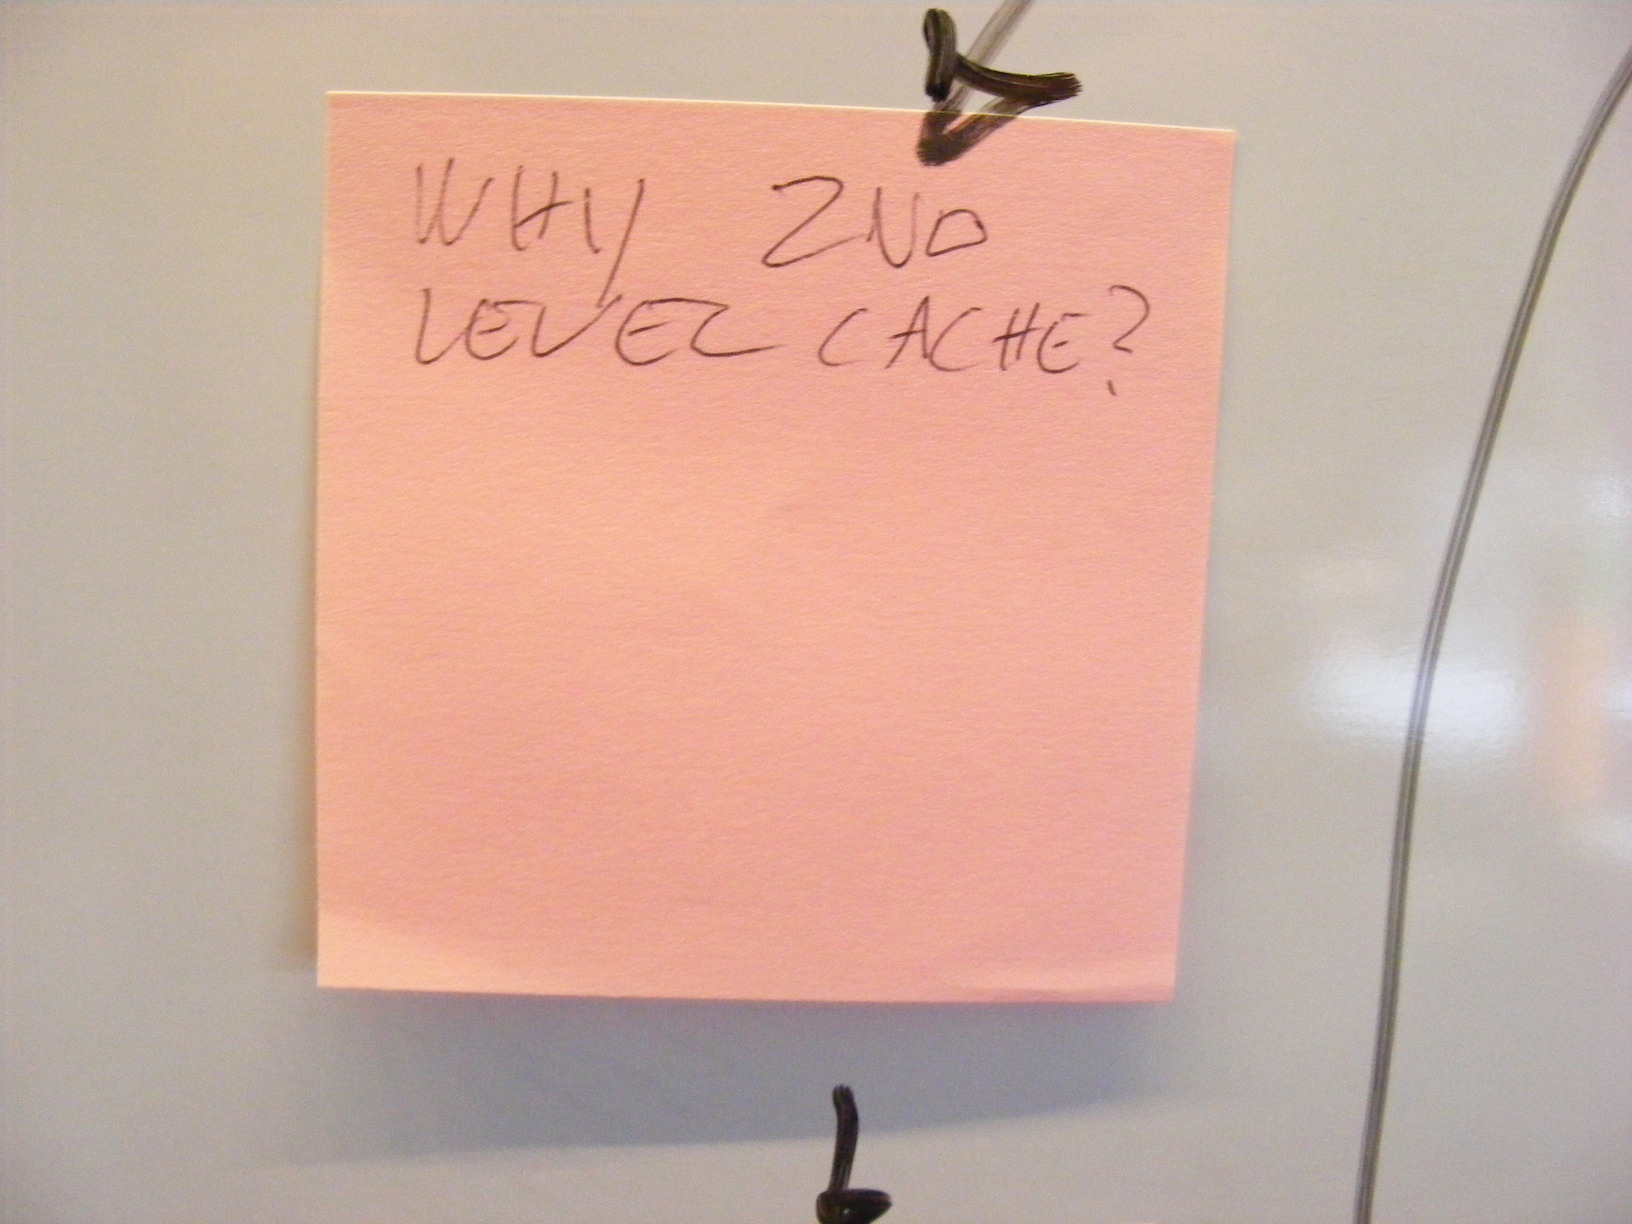 WHY 2ND
LEVEL CACHE?